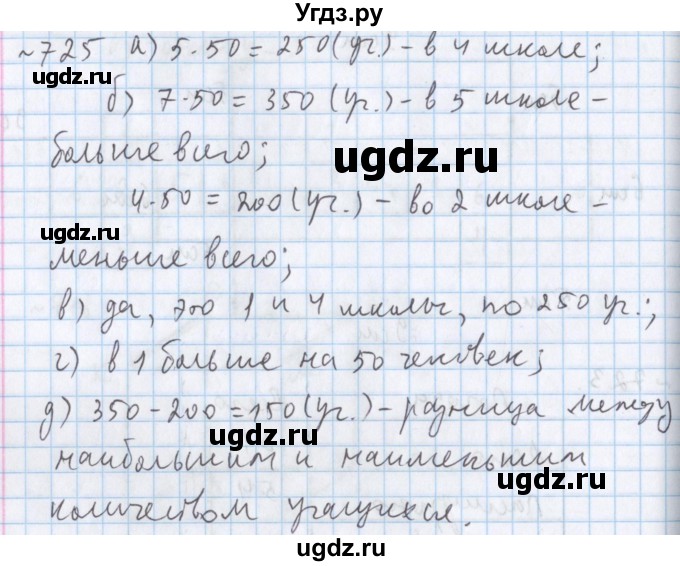 Угдз.ру
~725 а) 5·50 = 250 (уч.) - в 4 школе;
ugdz.ru
б) 7·50 = 350 (уч.) - в 5 школе -
больше всего;
ugdz.ru
4·50 = 200 (уч.) - во 2 школе -
ugdz.ru
меньше всего;
в) да, это 1 и 4 школы, по 250 уч.;
г) в 1 больше на 50 человек;
д) 350 - 200 = 150 (уч.) - разница между
ugdz.ru
наибольшим и наименьшим
ugdz.ru
количеством учащихся.
ugdz.ru